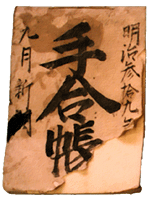 明治参拾九年
手合帳
九月新調